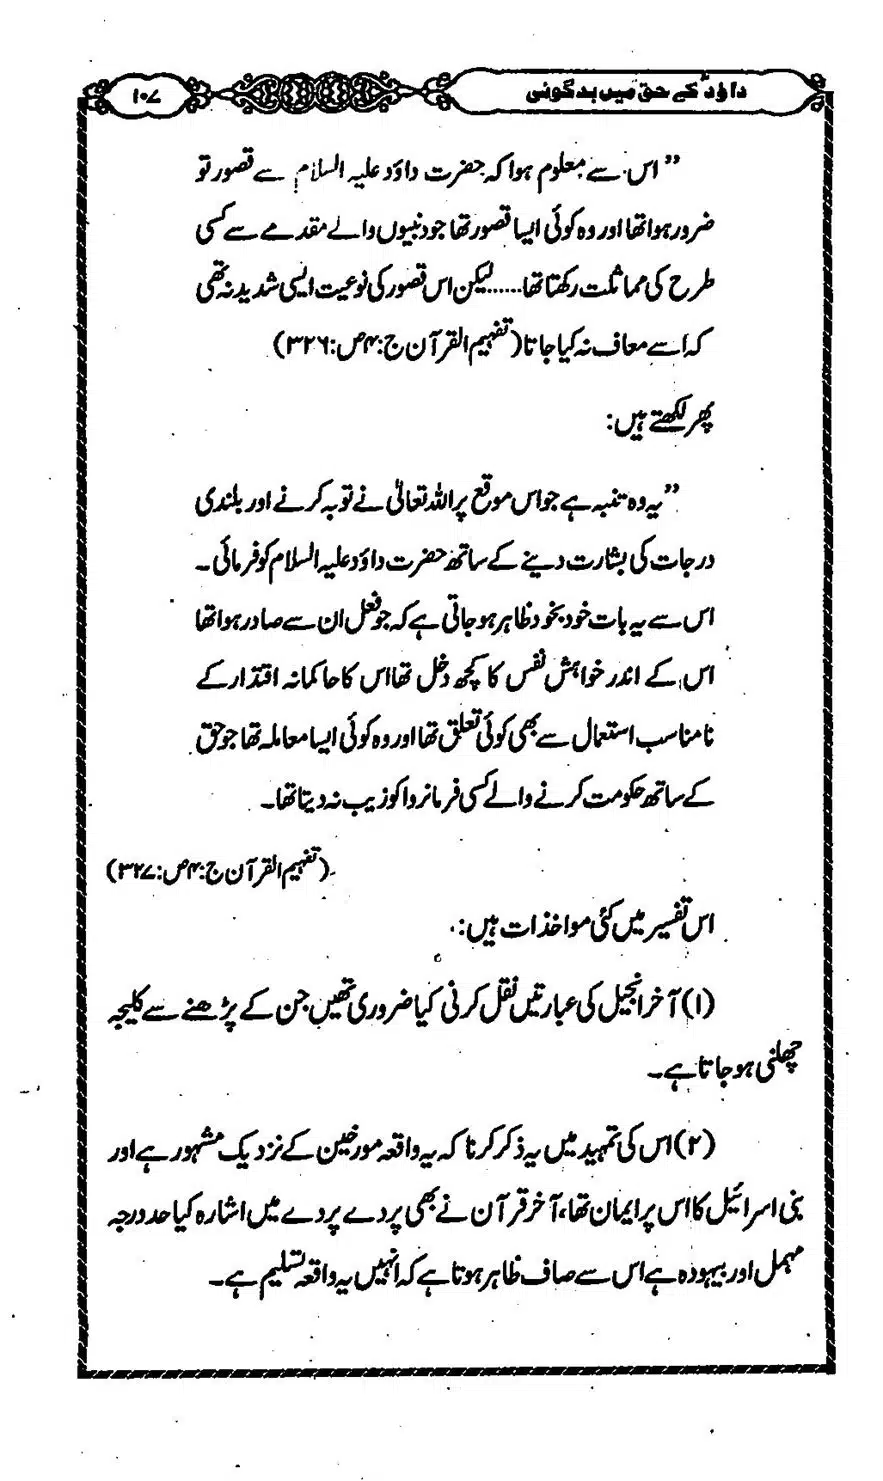 داؤدؑ کے حق میں بدگوئی
۱۰۷
”اس سے معلوم ہوا کہ حضرت داؤد علیہ السلام سے قصور تو
ضرور ہوا تھا اور وہ کوئی ایسا قصور تھا جو دنبیوں والے مقدمے سے کسی
طرح کی مماثلت رکھتا تھا......لیکن اس قصور کی نوعیت ایسی شدید نہ تھی
کہ اسے معاف نہ کیا جاتا (تفہیم القرآن ج:۴ ص:۳۲۶)
پھر لکھتے ہیں:
”یہ وہ تنبیہ ہے جو اس موقع پر اللہ تعالیٰ نے توبہ کرنے اور بلندی
درجات کی بشارت دینے کے ساتھ حضرت داؤد علیہ السلام کو فرمائی۔
اس سے یہ بات خود بخود ظاہر ہو جاتی ہے کہ جو فعل ان سے صادر ہوا تھا
اس کے اندر خواہش نفس کا کچھ دخل تھا اس کا حاکمانہ اقتدار کے
نامناسب استعمال سے بھی کوئی تعلق تھا اور وہ کوئی ایسا معاملہ تھا جو حق
کے ساتھ حکومت کرنے والے کسی فرمانروا کو زیب نہ دیتا تھا۔
(تفہیم القرآن ج:۴ ص:۳۲۷)
اس تفسیر میں کئی مواخذات ہیں:
(۱) آخر انجیل کی عبارتیں نقل کرنی کیا ضروری تھیں جن کے پڑھنے سے کلیجہ
چھلنی ہو جاتا ہے۔
(۲) اس کی تمہید میں یہ ذکر کرنا کہ یہ واقعہ مورخین کے نزدیک مشہور ہے اور
بنی اسرائیل کا اس پر ایمان تھا، آخر قرآن نے بھی پردے پردے میں اشارہ کیا حد درجہ
مہمل اور بیہودہ ہے اس سے صاف ظاہر ہوتا ہے کہ انہیں یہ واقعہ تسلیم ہے۔